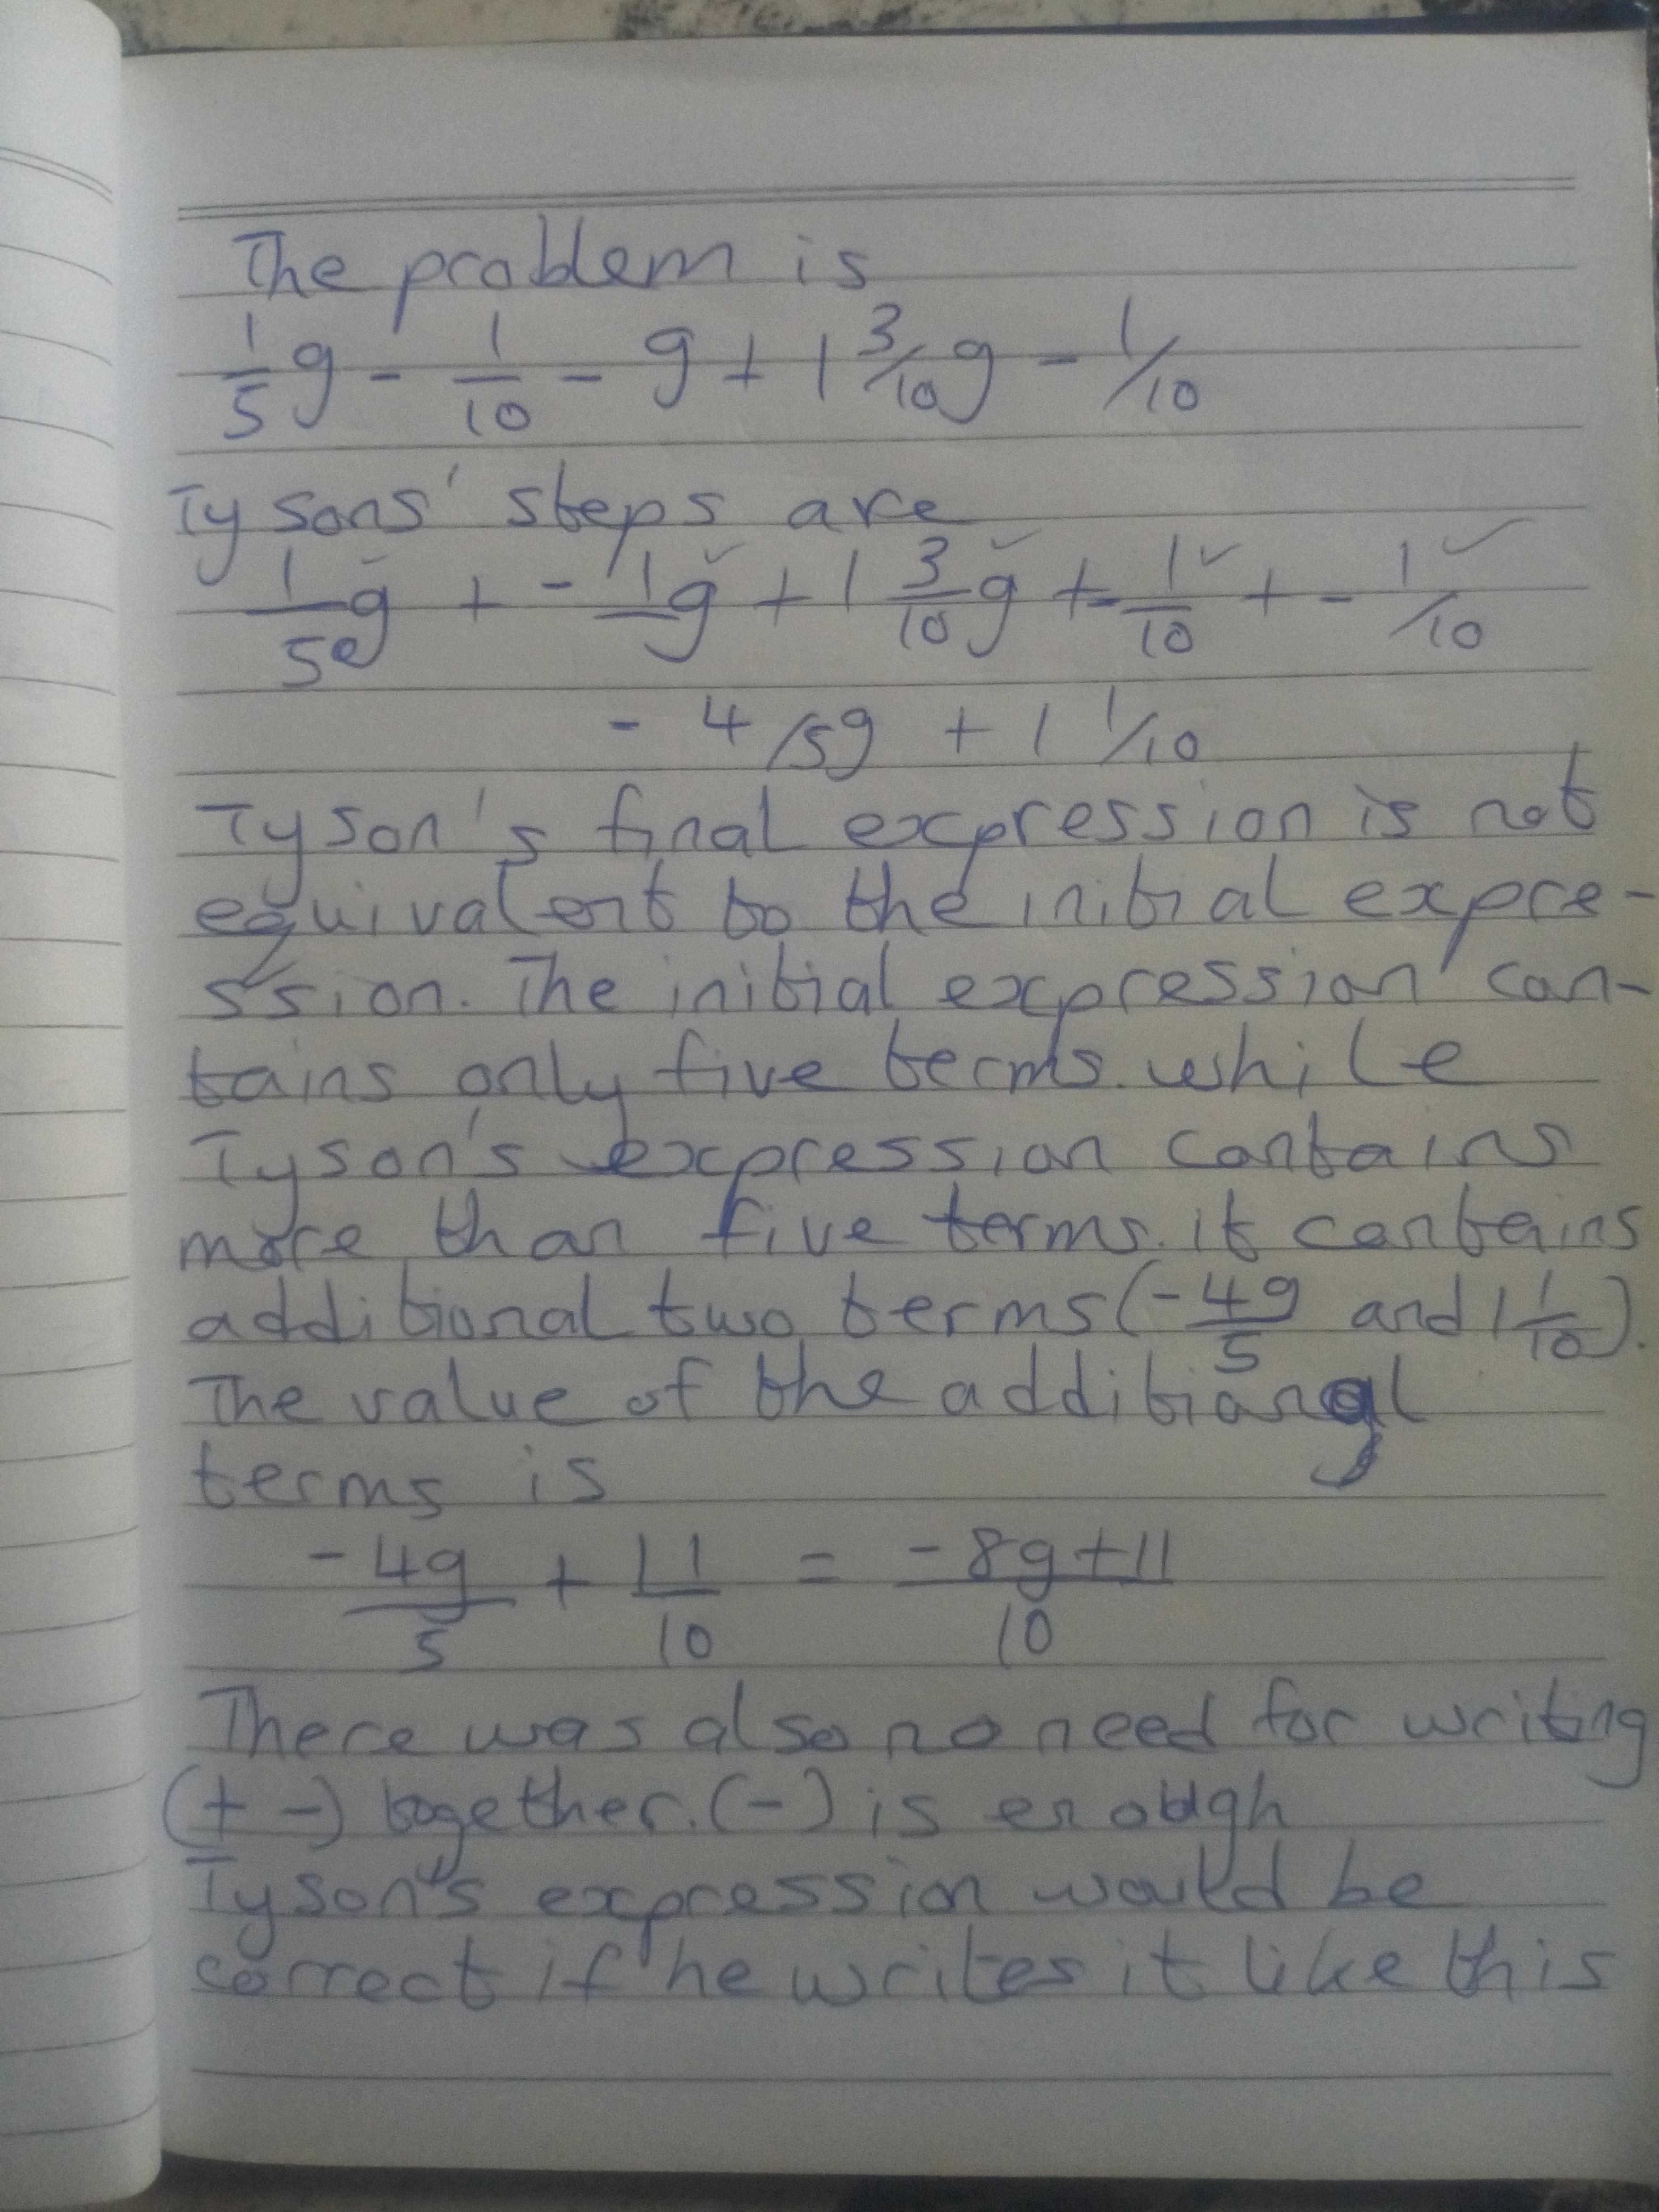 The problem is
1/5 g - 1/10 - g + 1 3/10 g - 1/10
Tysons' steps are
1/5 g + - 1g + 1 3/10 g + - 1/10 + - 1/10
- 4/5g + 1 1/10
Tyson's final expression is not
equivalent to the initial expre-
ssion. The initial expression con-
tains only five terms. while
Tyson's expression contains
more than five terms. it contains
additional two terms (-4g/5 and 1 1/10).
The value of the additional
terms is
-4g/5 + 11/10 = -8g+11/10
There was also no need for writing
(+ -) together. (-) is enough
Tyson's expression would be
correct if he writes it like this